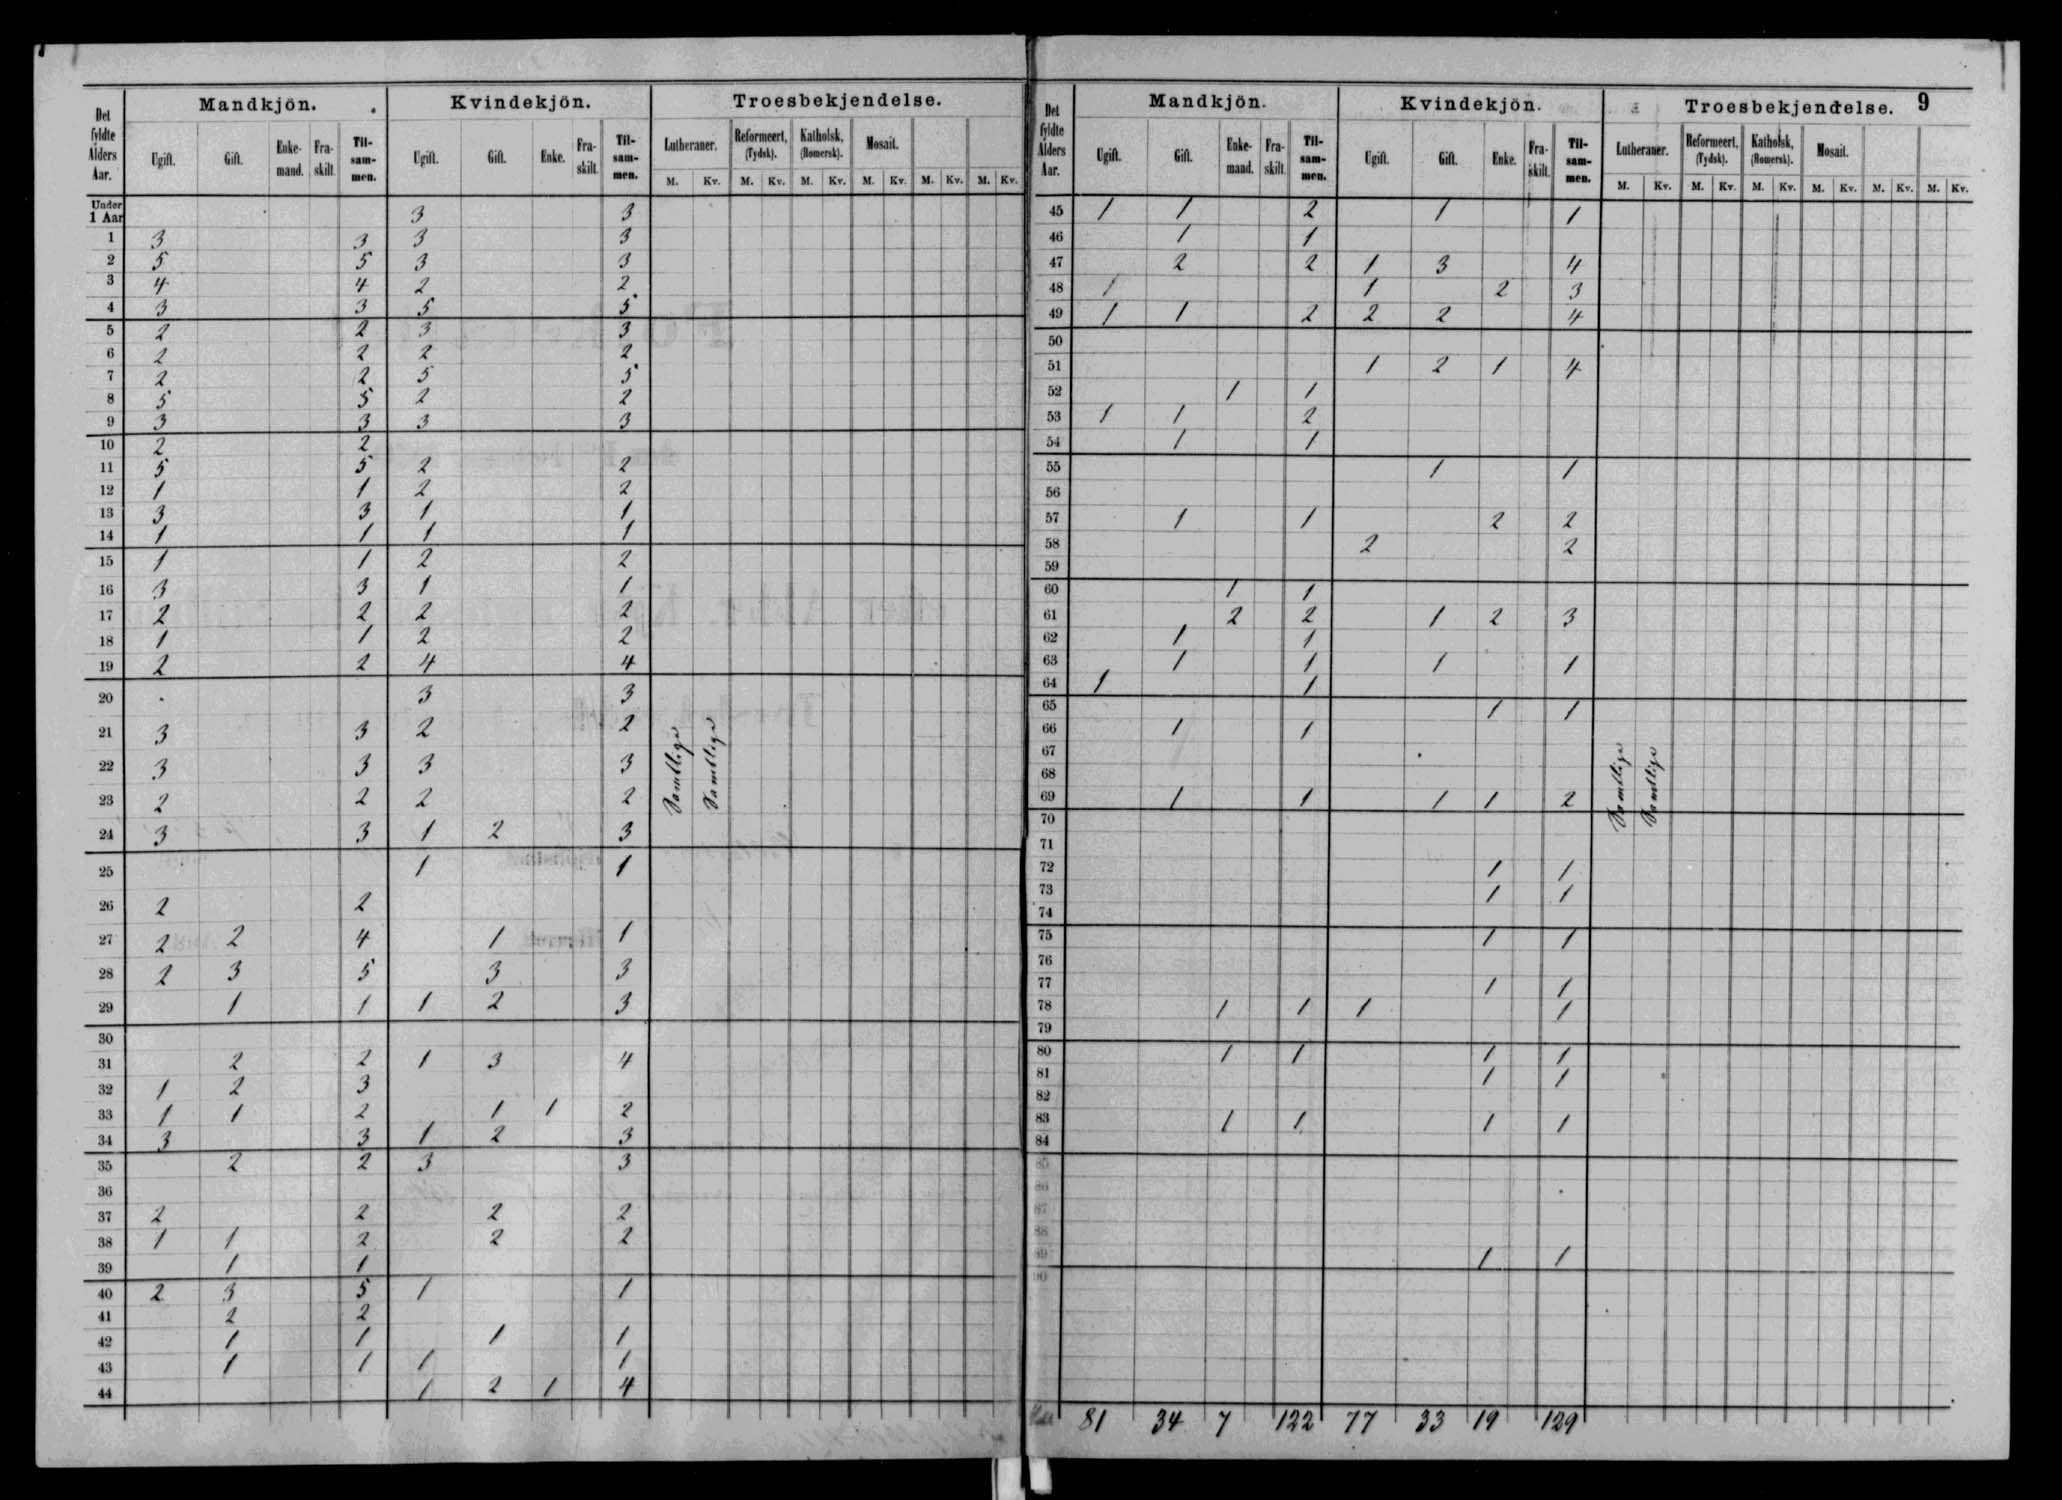 Det fyldte Alders Aar. | Mandkjön. | Kvindekjön. | Troesbekjendelse.
Ugift. | Gift. | Enke-mand. | Fra-skilt. | Til-sam-men. | Ugift. | Gift. | Enke. | Fra-skilt. | Til-sam-men. | Lutheraner. | Reformeert, (Tydsk). | Katholsk, (Romersk). | Mosait.
M. | Kv. | M. | Kv. | M. | Kv. | M. | Kv. | M. | Kv. | M. | Kv.
Under 1 Aar | 3 | 3
1 | 3 | 3 | 3 | 3
2 | 5 | 5 | 3 | 3
3 | 4 | 4 | 2 | 2
4 | 3 | 3 | 5 | 5
5 | 2 | 2 | 3 | 3
6 | 2 | 2 | 2 | 2
7 | 2 | 2 | 5 | 5
8 | 5 | 5 | 2 | 2
9 | 3 | 3 | 3 | 3
10 | 2 | 2
11 | 5 | 5 | 2 | 2
12 | 1 | 1 | 2 | 2
13 | 3 | 3 | 1 | 1
14 | 1 | 1 | 1 | 1
15 | 1 | 1 | 2 | 2
16 | 3 | 3 | 1 | 1
17 | 2 | 2 | 2 | 2
18 | 1 | 1 | 2 | 2
19 | 2 | 2 | 4 | 4
20 | 3 | 3
21 | 3 | 3 | 2 | 2
22 | 3 | 3 | 3 | 3
23 | 2 | 2 | 2 | 2
Samtlige | Samtlige
24 | 3 | 3 | 1 | 2 | 3
25 | 1 | 1
26 | 2 | 2
27 | 2 | 2 | 4 | 1 | 1
28 | 2 | 3 | 5 | 3 | 3
29 | 1 | 1 | 1 | 2 | 3
30
31 | 2 | 2 | 1 | 3 | 4
32 | 1 | 2 | 3
33 | 1 | 1 | 2 | 1 | 1 | 2
34 | 3 | 3 | 1 | 2 | 3
35 | 2 | 2 | 3 | 3
36
37 | 2 | 2 | 2 | 2
38 | 1 | 1 | 2 | 2 | 2
39 | 1 | 1
40 | 2 | 3 | 5 | 1 | 1
41 | 2 | 2
42 | 1 | 1 | 1 | 1
43 | 1 | 1 | 1 | 1
44 | 1 | 2 | 1 | 4
9
Det fyldte Alders Aar. | Mandkjön. | Kvindekjön. | Troesbekjendelse.
Ugift. | Gift. | Enke-mand. | Fra-skilt. | Til-sam-men. | Ugift. | Gift. | Enke. | Fra-skilt. | Til-sam-men. | Lutheraner. | Reformeert, (Tydsk). | Katholsk, (Romersk). | Mosait.
M. | Kv. | M. | Kv. | M. | Kv. | M. | Kv. | M. | Kv. | M. | Kv.
45 | 1 | 1 | 2 | 1 | 1
46 | 1 | 1
47 | 2 | 2 | 1 | 3 | 4
48 | 1 | 1 | 2 | 3
49 | 1 | 1 | 2 | 2 | 2 | 4
50
51 | 1 | 2 | 1 | 4
52 | 1 | 1
53 | 1 | 1 | 2
54 | 1 | 1
55 | 1 | 1
56
57 | 1 | 1 | 2 | 2
58 | 2 | 2
59
60 | 1 | 1
61 | 2 | 2 | 1 | 2 | 3
62 | 1 | 1
63 | 1 | 1 | 1 | 1
64 | 1 | 1
65 | 1 | 1
66 | 1 | 1
67
68
69 | 1 | 1 | 1 | 1 | 2
Samtlige | Samtlige
70
71
72 | 1 | 1
73 | 1 | 1
74
75 | 1 | 1
76
77 | 1 | 1
78 | 1 | 1 | 1 | 1
79
80 | 1 | 1 | 1 | 1
81 | 1 | 1
82
83 | 1 | 1 | 1 | 1
84
85
86
87
88
89 | 1 | 1
90
81 | 34 | 7 | 122 | 77 | 33 | 19 | 129